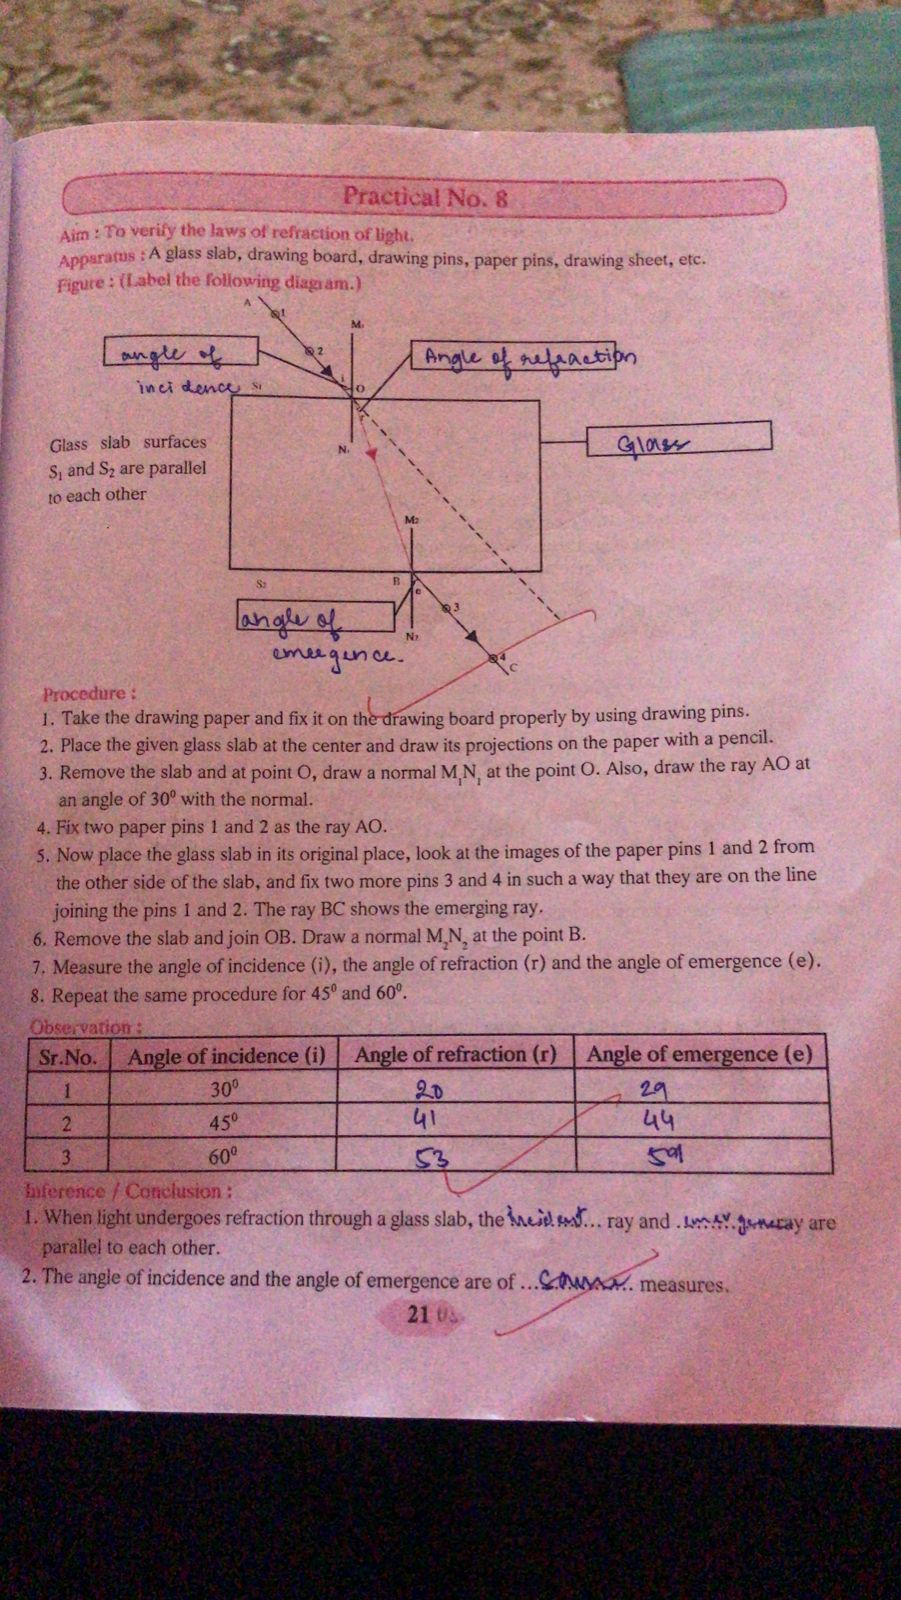 Practical No. 8
Aim : To verify the laws of refraction of light.
Apparatus : A glass slab, drawing board, drawing pins, paper pins, drawing sheet, etc.
Figure : (Label the following diagram.)
A
1
M₁
2
angle of
incidence
Angle of refraction
i
O
S₁
r
Glass slab surfaces
S₁ and S₂ are parallel
to each other
N₁
Glass
M₂
S₂
B
e
3
angle of
emergence.
N₂
4
C
Procedure :
1. Take the drawing paper and fix it on the drawing board properly by using drawing pins.
2. Place the given glass slab at the center and draw its projections on the paper with a pencil.
3. Remove the slab and at point O, draw a normal M₁N₁ at the point O. Also, draw the ray AO at
an angle of 30⁰ with the normal.
4. Fix two paper pins 1 and 2 as the ray AO.
5. Now place the glass slab in its original place, look at the images of the paper pins 1 and 2 from
the other side of the slab, and fix two more pins 3 and 4 in such a way that they are on the line
joining the pins 1 and 2. The ray BC shows the emerging ray.
6. Remove the slab and join OB. Draw a normal M₂N₂ at the point B.
7. Measure the angle of incidence (i), the angle of refraction (r) and the angle of emergence (e).
8. Repeat the same procedure for 45⁰ and 60⁰.
Observation :
Sr.No. Angle of incidence (i) Angle of refraction (r) Angle of emergence (e)
1 30⁰ 20 29
2 45⁰ 41 44
3 60⁰ 53 59
Inference / Conclusion :
1. When light undergoes refraction through a glass slab, the incident... ray and ray are
parallel to each other.
2. The angle of incidence and the angle of emergence are of ...same... measures.
21